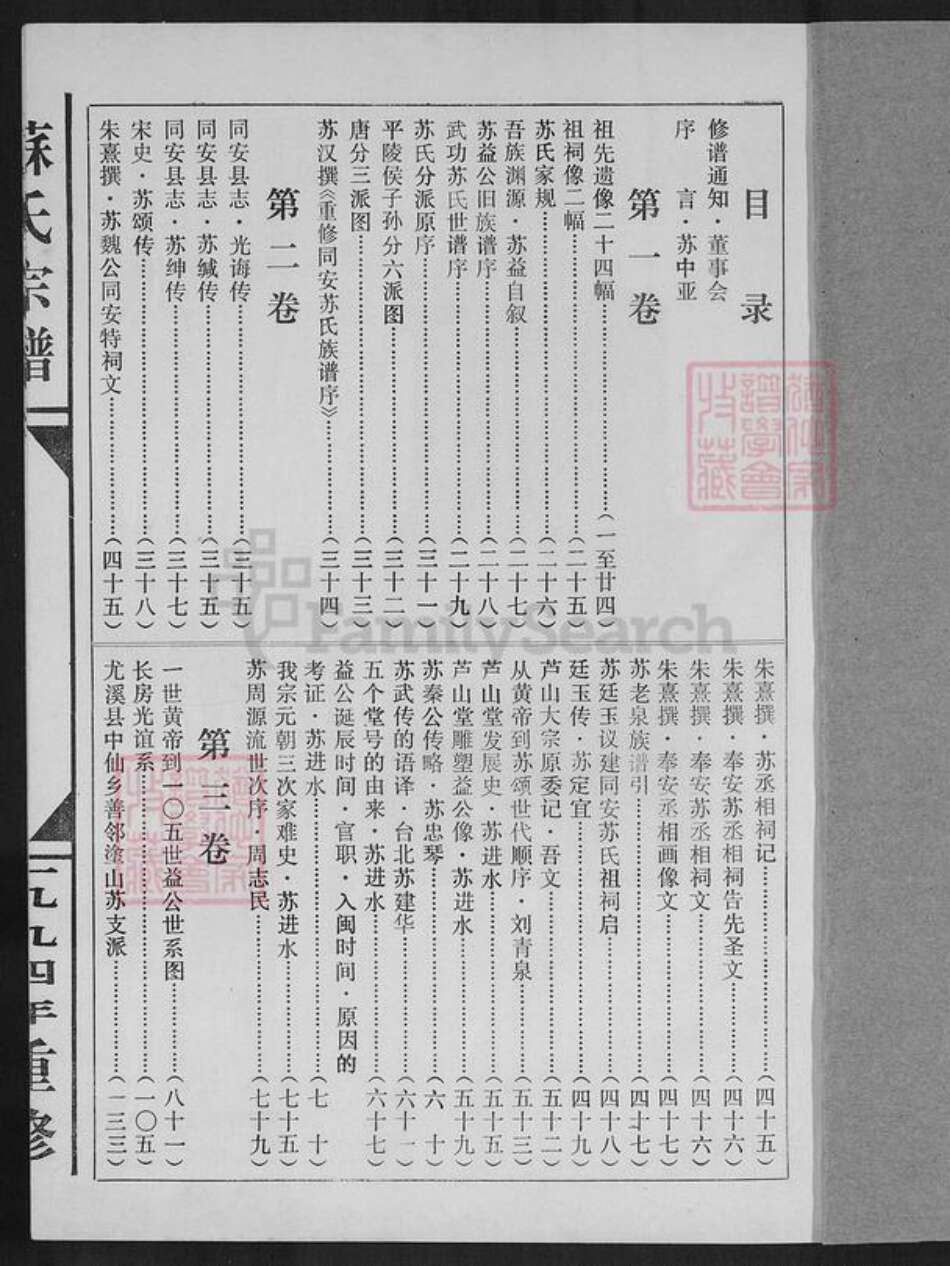 目录
修谱通知·董事会
序言·苏中亚
第一卷
祖先遗像二十四幅……(一至廿四)
祖祠像二幅……(二十五)
苏氏家规……(二十六)
吾族渊源·苏益自叙……(二十七)
苏益公旧族谱序……(二十八)
武功苏氏世谱序……(二十九)
苏氏分派原序……(三十一)
平陵侯子孙分六派图……(三十二)
唐分三派图……(三十三)
苏汉撰《重修同安苏氏族谱序》……(三十四)
第二卷
同安县志·光诲传……(三十五)
同安县志·苏缄传……(三十五)
同安县志·苏绅传……(三十七)
宋史·苏颂传……(三十八)
朱熹撰·苏魏公同安特祠文……(四十五)
朱熹撰·苏丞相祠记……(四十五)
朱熹撰·奉安苏丞相祠告先圣文……(四十六)
朱熹撰·奉安苏丞相祠文……(四十六)
朱熹撰·奉安丞相画像文……(四十七)
苏老泉族谱引……(四十七)
苏廷玉议建同安苏氏祖祠启……(四十八)
廷玉传·苏定宜……(四十九)
芦山大宗原委记·吾文……(五十二)
从黄帝到苏颂世代顺序·刘青泉……(五十三)
芦山堂发展史·苏进水……(五十五)
芦山堂雕塑益公像·苏进水……(五十九)
苏秦公传略·苏忠琴……(六十)
苏武传的语译·台北苏建华……(六十一)
五个堂号的由来·苏进水……(六十七)
益公诞辰时间·官职·入闽时间·原因的
考证·苏进水……(七十)
我宗元朝三次家难史·苏进水……(七十五)
苏周源流世次序·周志民……(七十九)
第三卷
一世黄帝到一〇五世益公世系图……(八十一)
长房光谊系……(一〇五)
尤溪县中仙乡善邻塗山苏支派……(一三三)
苏氏宗谱
一九九四年重修
FamilySearch